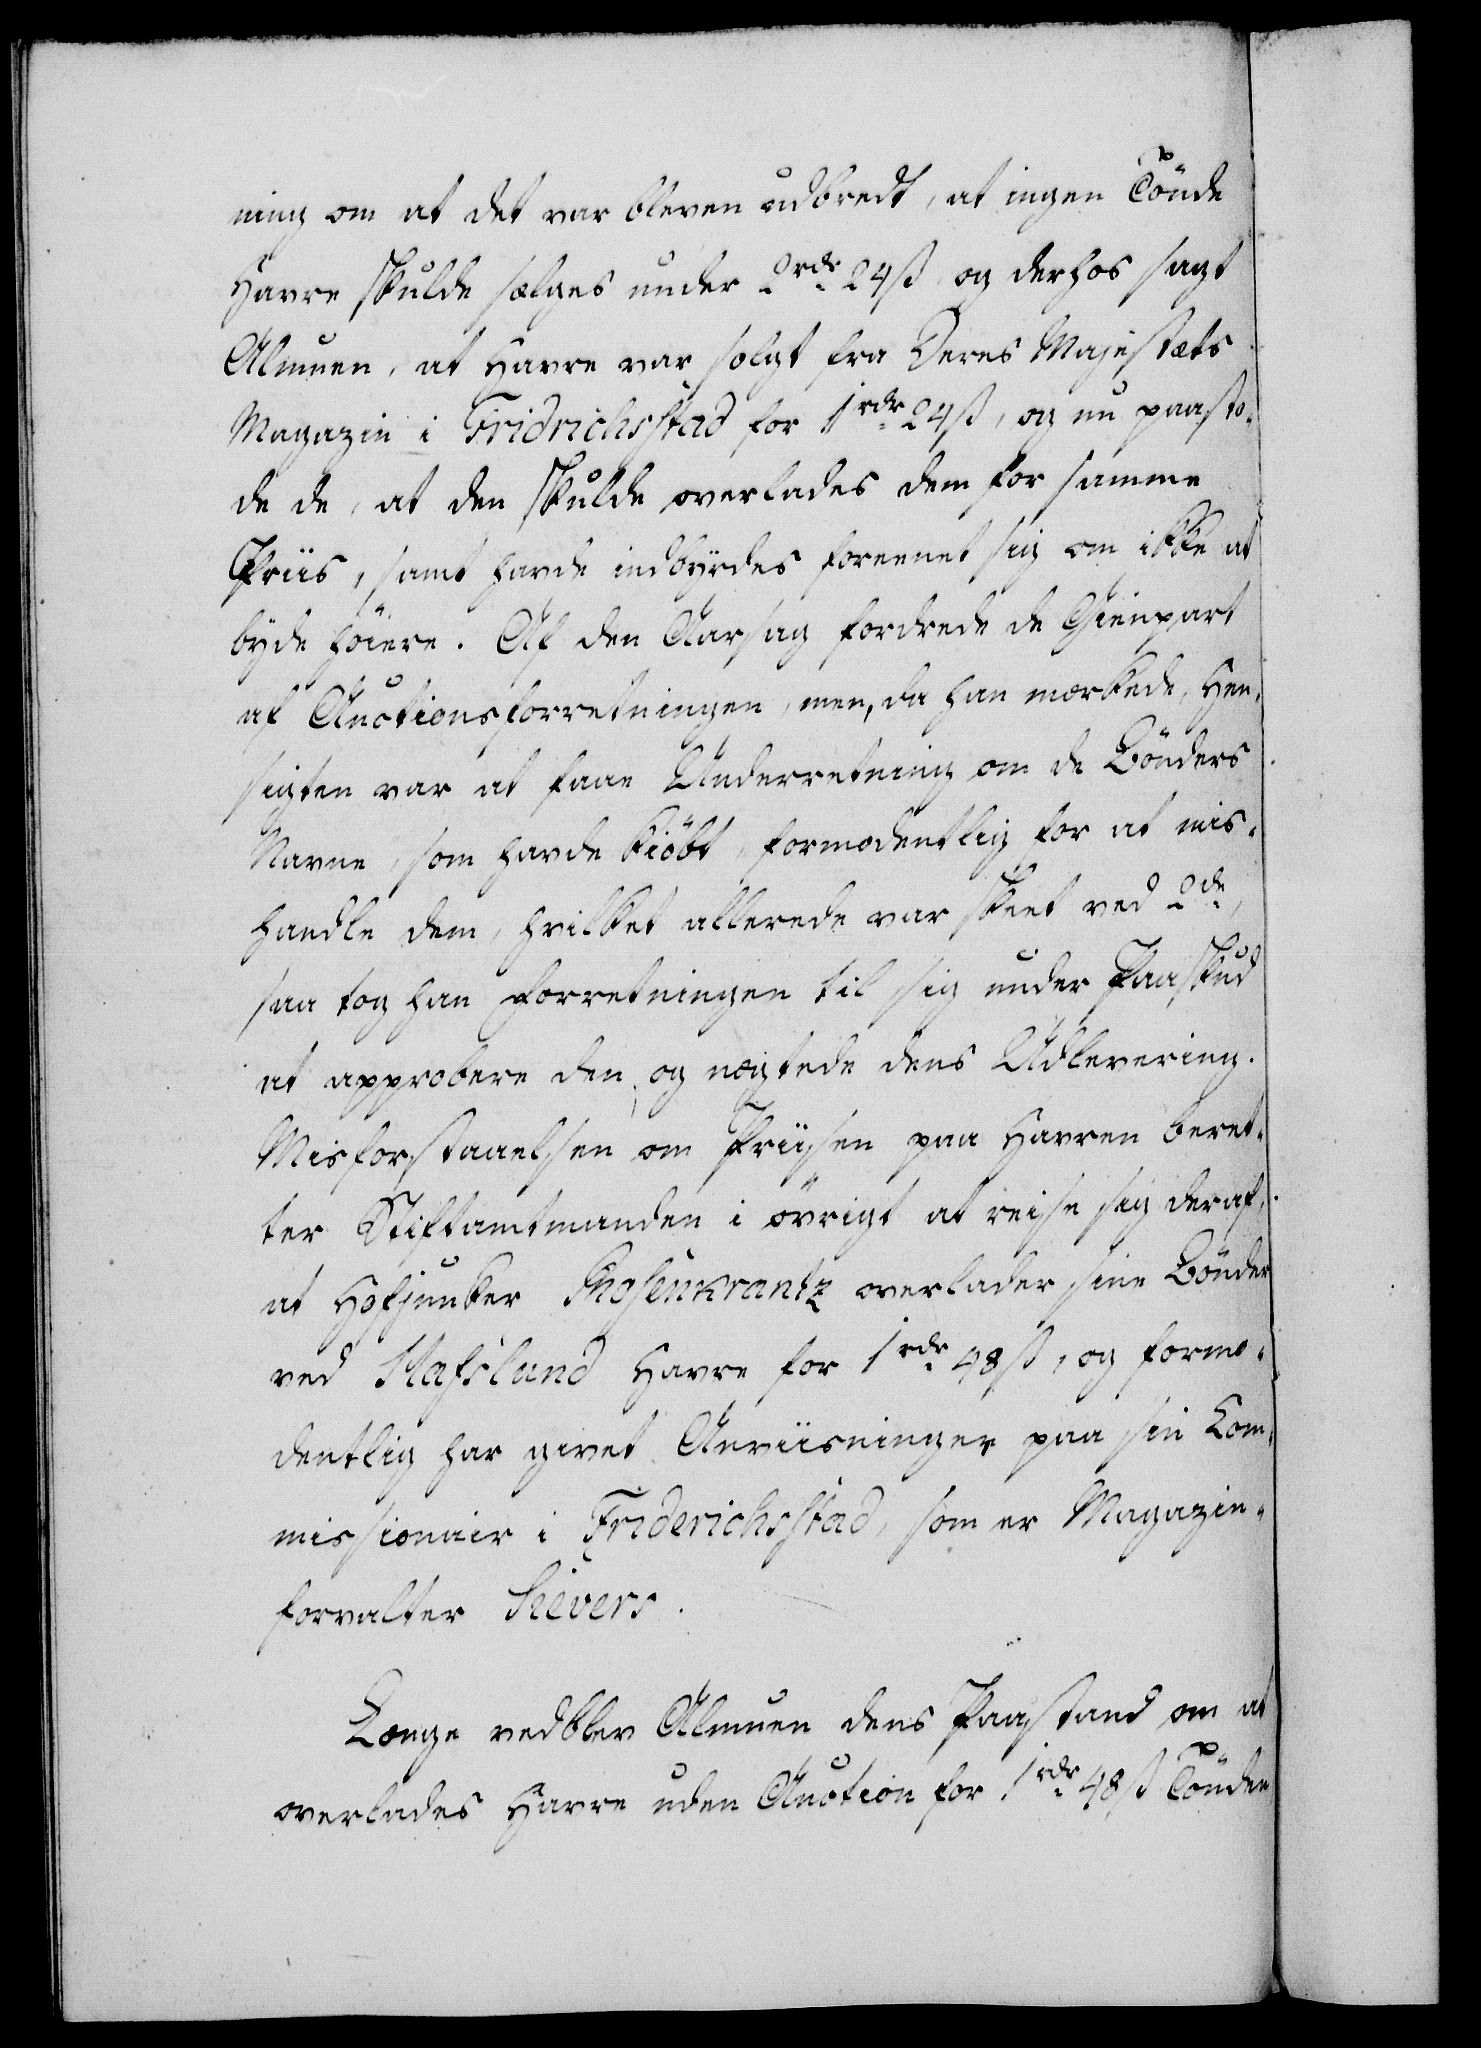 ning om at det var bleven udbredt, at ingen Tönde
Havre skulde sælges under 2rdr 24ß, og derhos sagt
Almuen, at Havre var solgt fra Deres Majestæts
Magazin i Fridrichsstad for 1rdr 24ß, og nu paasto-
de de, at den skulde overlades dem for samme
Priis, samt havde indbyrdes foreenet sig om ikke at
byde höiere. Af den Aarsag fordrede de Gienpart
af Auctionsforretningen, men, da han mærkede, Hen-
sigten var at faae Underretning om de Bönders
Navne, som havde kiöbt, formodentlig for at mis-
handle dem, hvilket allerede var skeet ved 2de,
saa tog han Forretningen til sig under Paaskud
at approbere den, og nægtede dens Udlevering.
Misforstaaelsen om Priisen paa Havren beret-
ter Stiftamtmanden i övrigt at reise sig deraf,
at Hofjunker Rosenkrantz overlader sine Bönder
ved Hafslund Havre for 1rdr 48ß, og formo-
dentlig har givet Anviisninger paa sin Com-
missionair i Friderichsstad, som er Magazin-
forvalter Sievers.
Længe vedblev Almuen dens Paastand om at
overlades Havre uden Auction for 1rdr 48ß Tönden